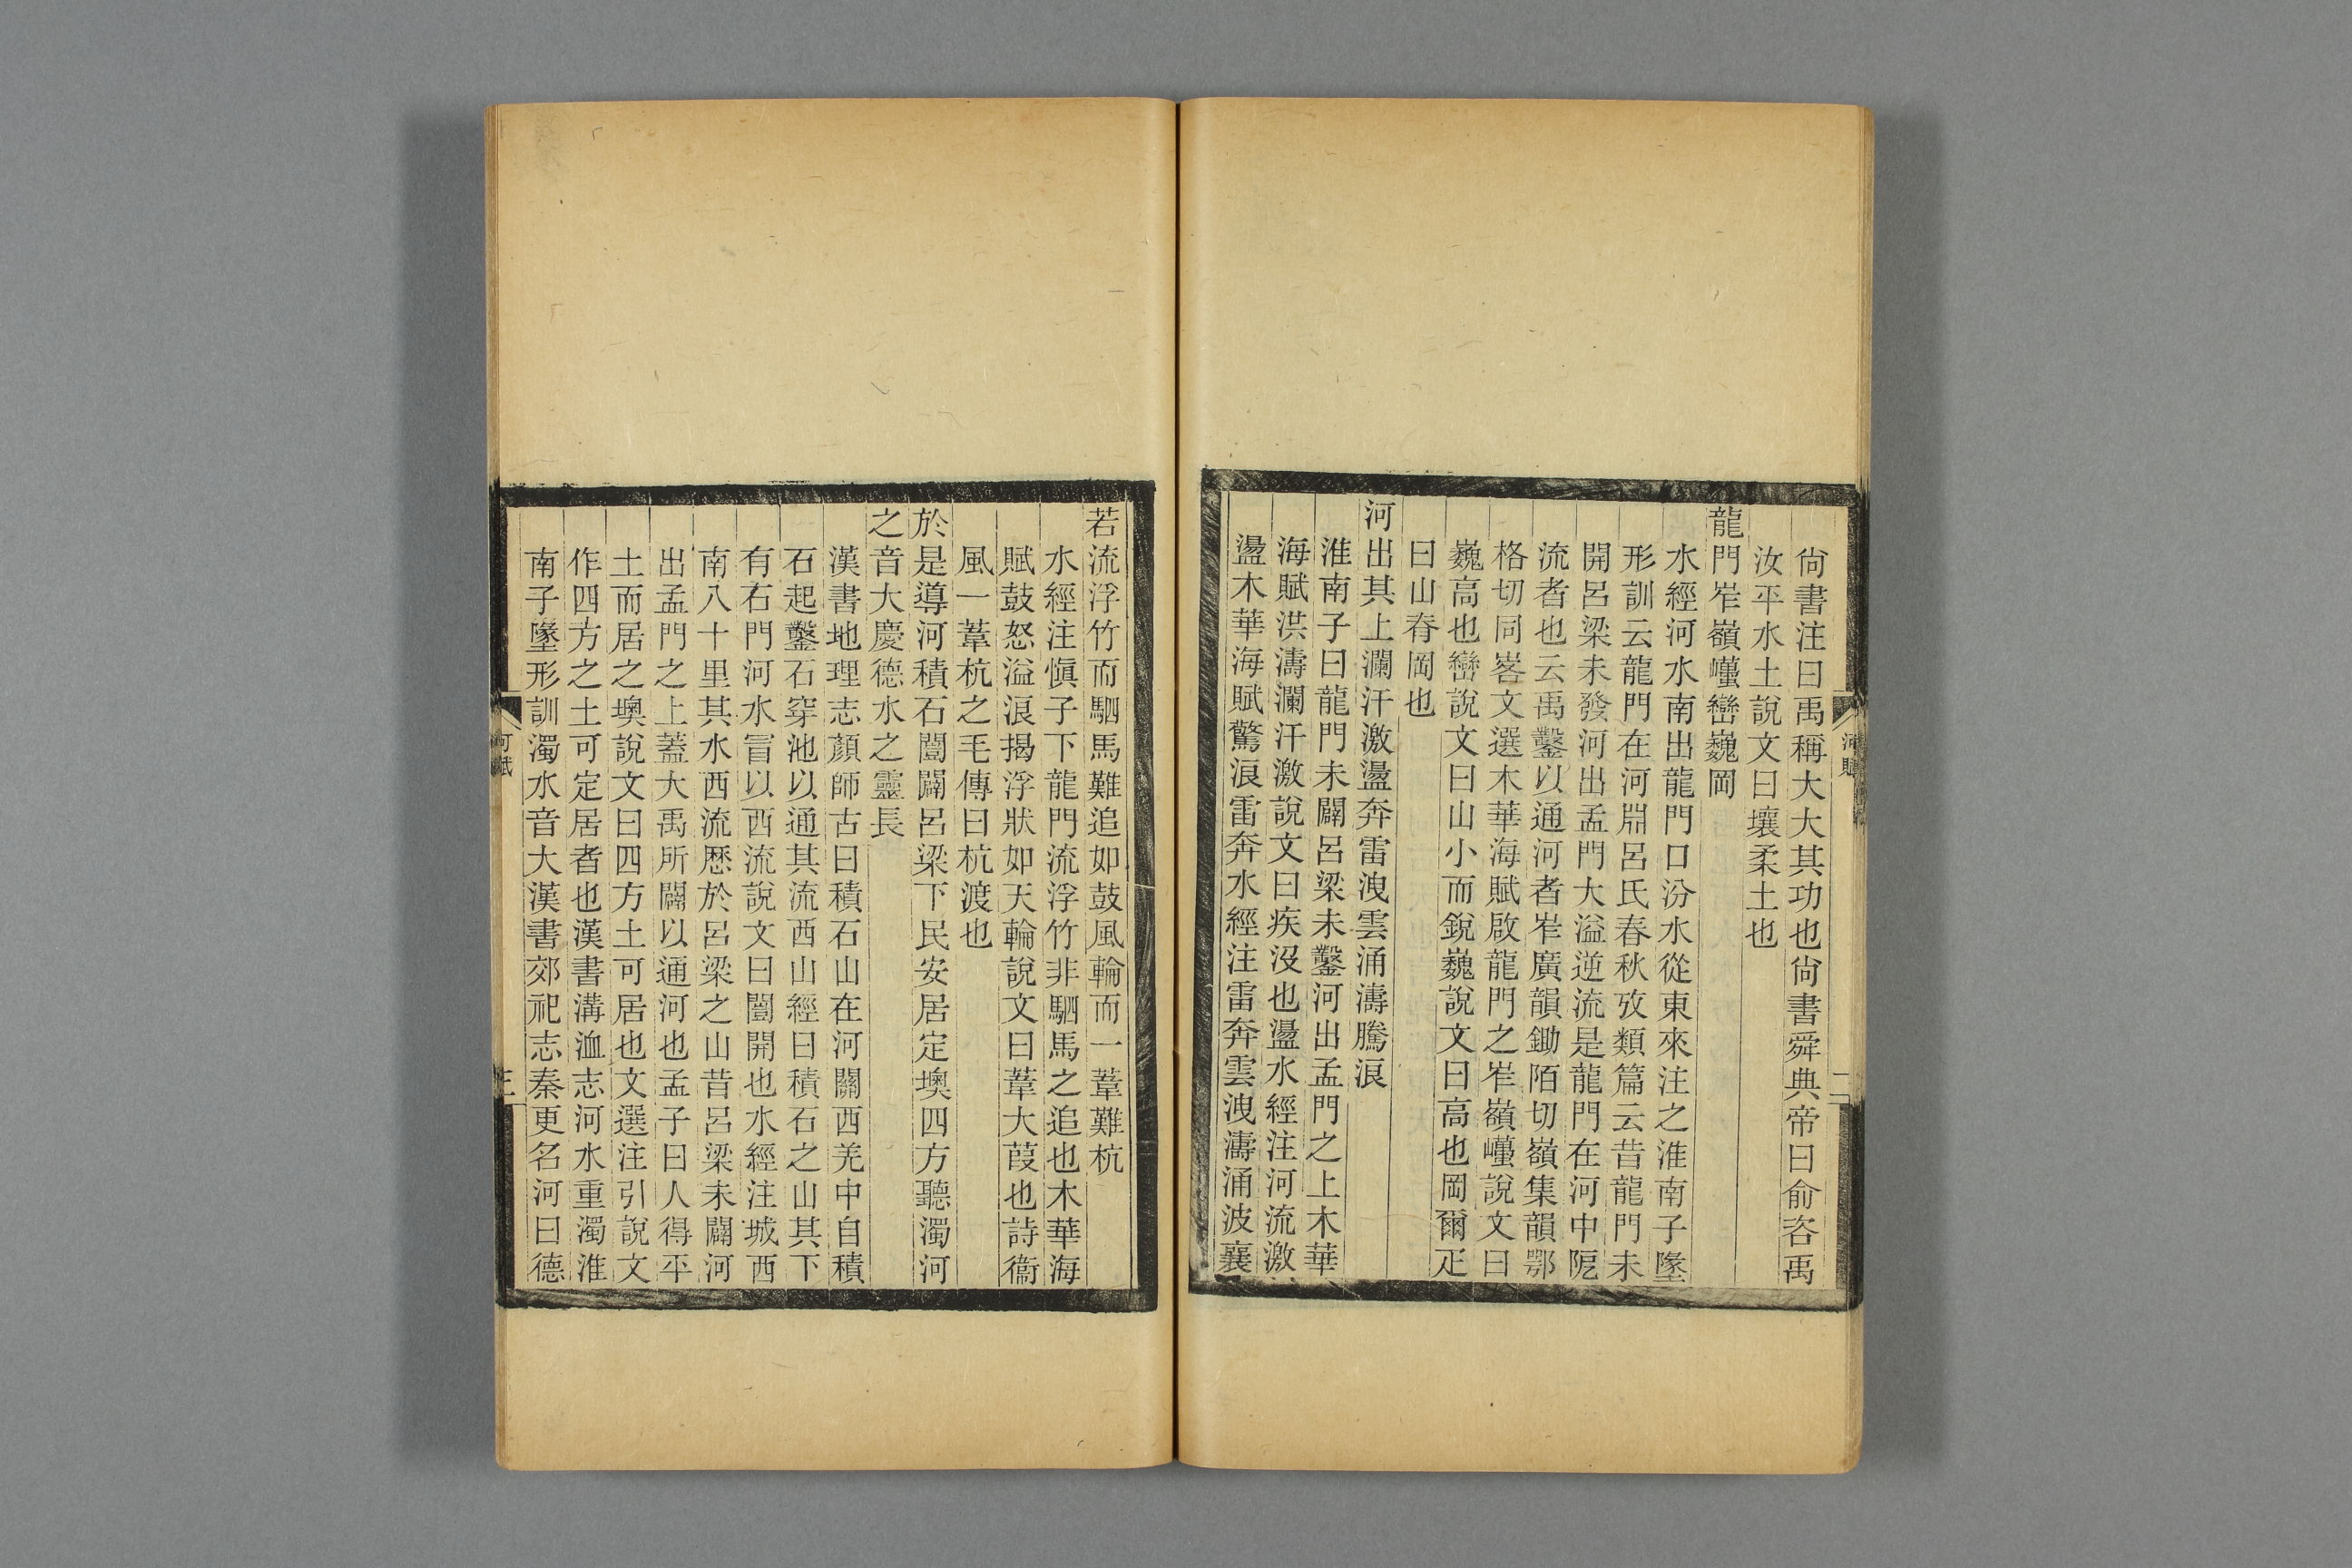 尙書注曰禹稱大大其功也尙書舜典帝曰俞咨禹
汝平水土說文曰壤柔土也
龍門岝嶺𡾰巒巍岡
水經河水南出龍門口汾水從東來注之淮南子墬
形訓云龍門在河淵呂氏春秋攷類篇云昔龍門未
開呂梁未發河出孟門大溢逆流是龍門在河中阨
流者也云禹鑿以通河者岝廣韻鋤陌切嶺集韻鄂
格切同峉文選木華海賦啟龍門之岝嶺𡾰說文曰
巍高也巒說文曰山小而銳巍說文曰高也岡爾疋
曰山脊岡也
河出其上瀾汗激盪奔雷洩雲涌濤騰浪
淮南子曰龍門未闢呂梁未鑿河出孟門之上木華
海賦洪濤瀾汗激說文曰疾沒也盪水經注河流激
盪木華海賦驚浪雷奔水經注雷奔雲洩濤涌波襄
河賦
二
若流浮竹而駟馬難追如鼓風輪而一葦難杭
水經注愼子下龍門流浮竹非駟馬之追也木華海
賦鼓怒溢浪揭浮狀如天輪說文曰葦大葭也詩衞
風一葦杭之毛傳曰杭渡也
於是導河積石闓闢呂梁下民安居定墺四方聽濁河
之音大慶德水之靈長
漢書地理志顏師古曰積石山在河關西羌中自積
石起鑿石穿沲以通其流西山經曰積石之山其下
有石門河水冒以西流說文曰闓開也水經注城西
南八十里其水西流歷於呂梁之山昔呂梁未闢河
出孟門之上蓋大禹所闢以通河也孟子曰人得平
土而居之墺說文曰四方土可居也文選注引說文
作四方之土可定居者也漢書溝洫志河水重濁淮
南子墬形訓濁水音大漢書郊祀志秦更名河曰德
河賦
三